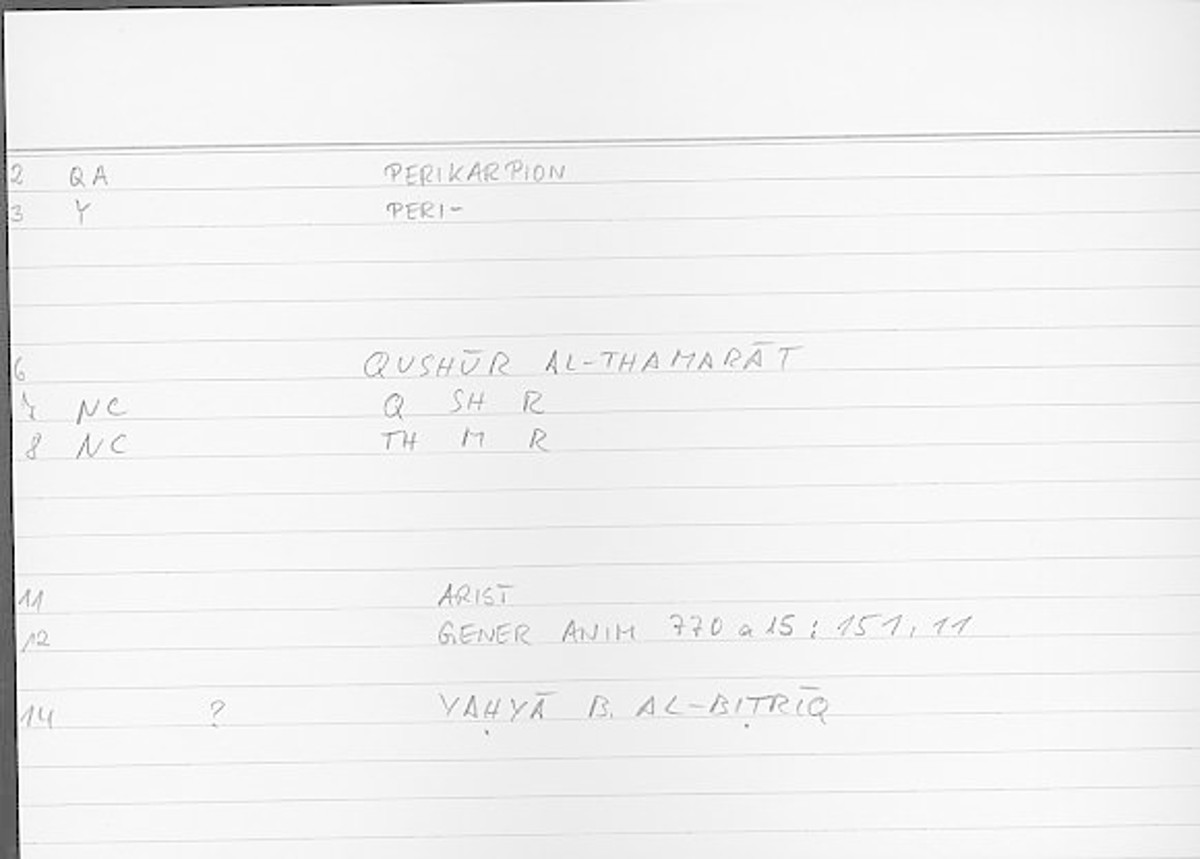 2 QA PERIKARPION
3 Y PERI-
6 QUSHŪR AL-THAMARĀT
7 NC Q SH R
8 NC TH M R
11 ARIST
12 GENER ANIM 770 a 15 ; 151, 11
14 ? YAḤYĀ B. AL-BIṬRĪQ